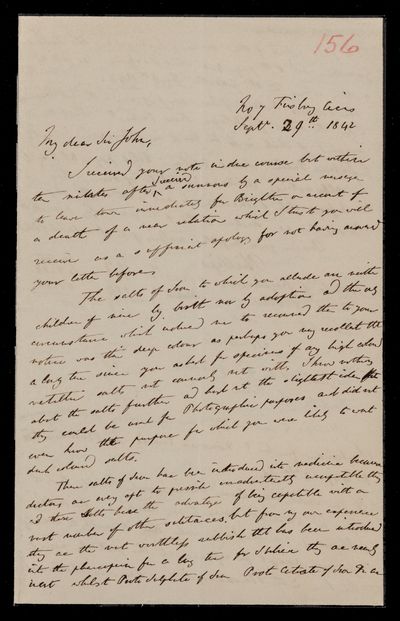 156
No 7 Finsbury Circus
Septr. 29th. 1842
My dear Sir John,
I received your note in due course but within
ten minutes after I received a summons by a special message
to leave town immediately for Brighton on account of
a death of a near relation which I trust you will
receive as a sufficient apology for not having answered
your letter before.
The salts of Iron to which you allude are neither
children of mine by birth nor by adoption and the only
circumstance which induced me to recommend them to your
notice was their deep colour as perhaps you may recollect that
a long time since you asked for specimens of any high colored
metallic salts not commonly met with. I know nothing
about the salts further and had not the slightest idea that
they could be used for Photographic purposes and did not
even know the purpose for which you were likely to want
such colored salts.
These salts of Iron have been introduced into medicine because
doctors are very apt to prescribe inadvertently incompatible things
and these salts have the advantage of being compatible with a
vast number of other substances, but from my own experience
they are the most worthless rubbish that has been introduced
into the pharmacopeia for a long time for I believe they are nearly
inert whilst Proto Sulphate of Iron Proto Citrate of Iron &c are